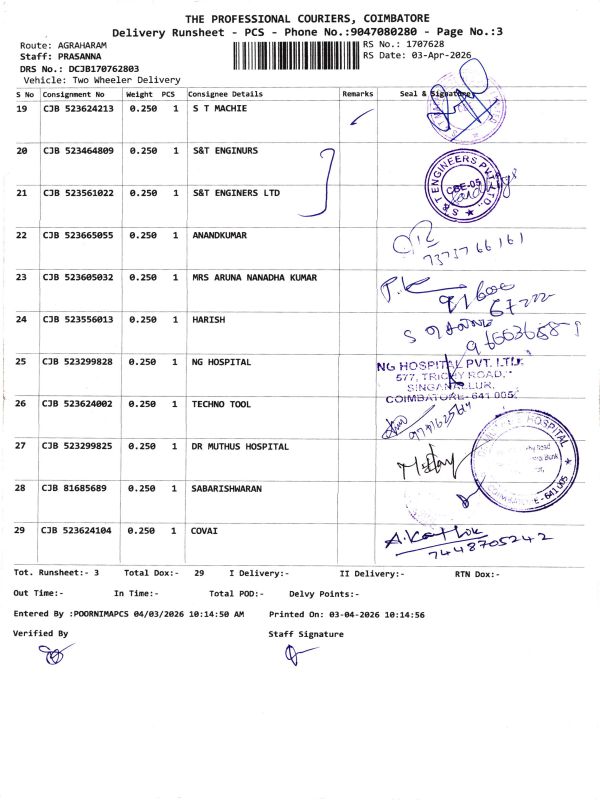 THE PROFESSIONAL COURIERS, COIMBATORE
Delivery Runsheet - PCS - Phone No.:9047080280 - Page No.:3
Route: AGRAHARAM
RS No.: 1707628
Staff: PRASANNA
RS Date: 03-Apr-2026
DRS No.: DCJB170762803
Vehicle: Two Wheeler Delivery
S No Consignment No Weight PCS Consignee Details Remarks Seal & Signature
19 CJB 523624213 0.250 1 S T MACHIE
20 CJB 523464809 0.250 1 S&T ENGINURS
S & T ENGINEERS PVT. LTD.
CBE-05
21 CJB 523561022 0.250 1 S&T ENGINERS LTD
22 CJB 523665055 0.250 1 ANANDKUMAR
73737 66161
23 CJB 523605032 0.250 1 MRS ARUNA NANADHA KUMAR
P.K
24 CJB 523556013 0.250 1 HARISH
25 CJB 523299828 0.250 1 NG HOSPITAL
NG HOSPITAL PVT. LTD.
577, TRICHY ROAD,
SINGANALLUR,
COIMBATORE-641 005.
26 CJB 523624002 0.250 1 TECHNO TOOL
27 CJB 523299825 0.250 1 DR MUTHUS HOSPITAL
HOSPITAL
28 CJB 81685689 0.250 1 SABARISHWARAN
29 CJB 523624104 0.250 1 COVAI
7448705242
Tot. Runsheet:- 3 Total Dox:- 29 I Delivery:- II Delivery:- RTN Dox:-
Out Time:- In Time:- Total POD:- Delvy Points:-
Entered By :POORNIMAPCS 04/03/2026 10:14:50 AM Printed On: 03-04-2026 10:14:56
Verified By Staff Signature